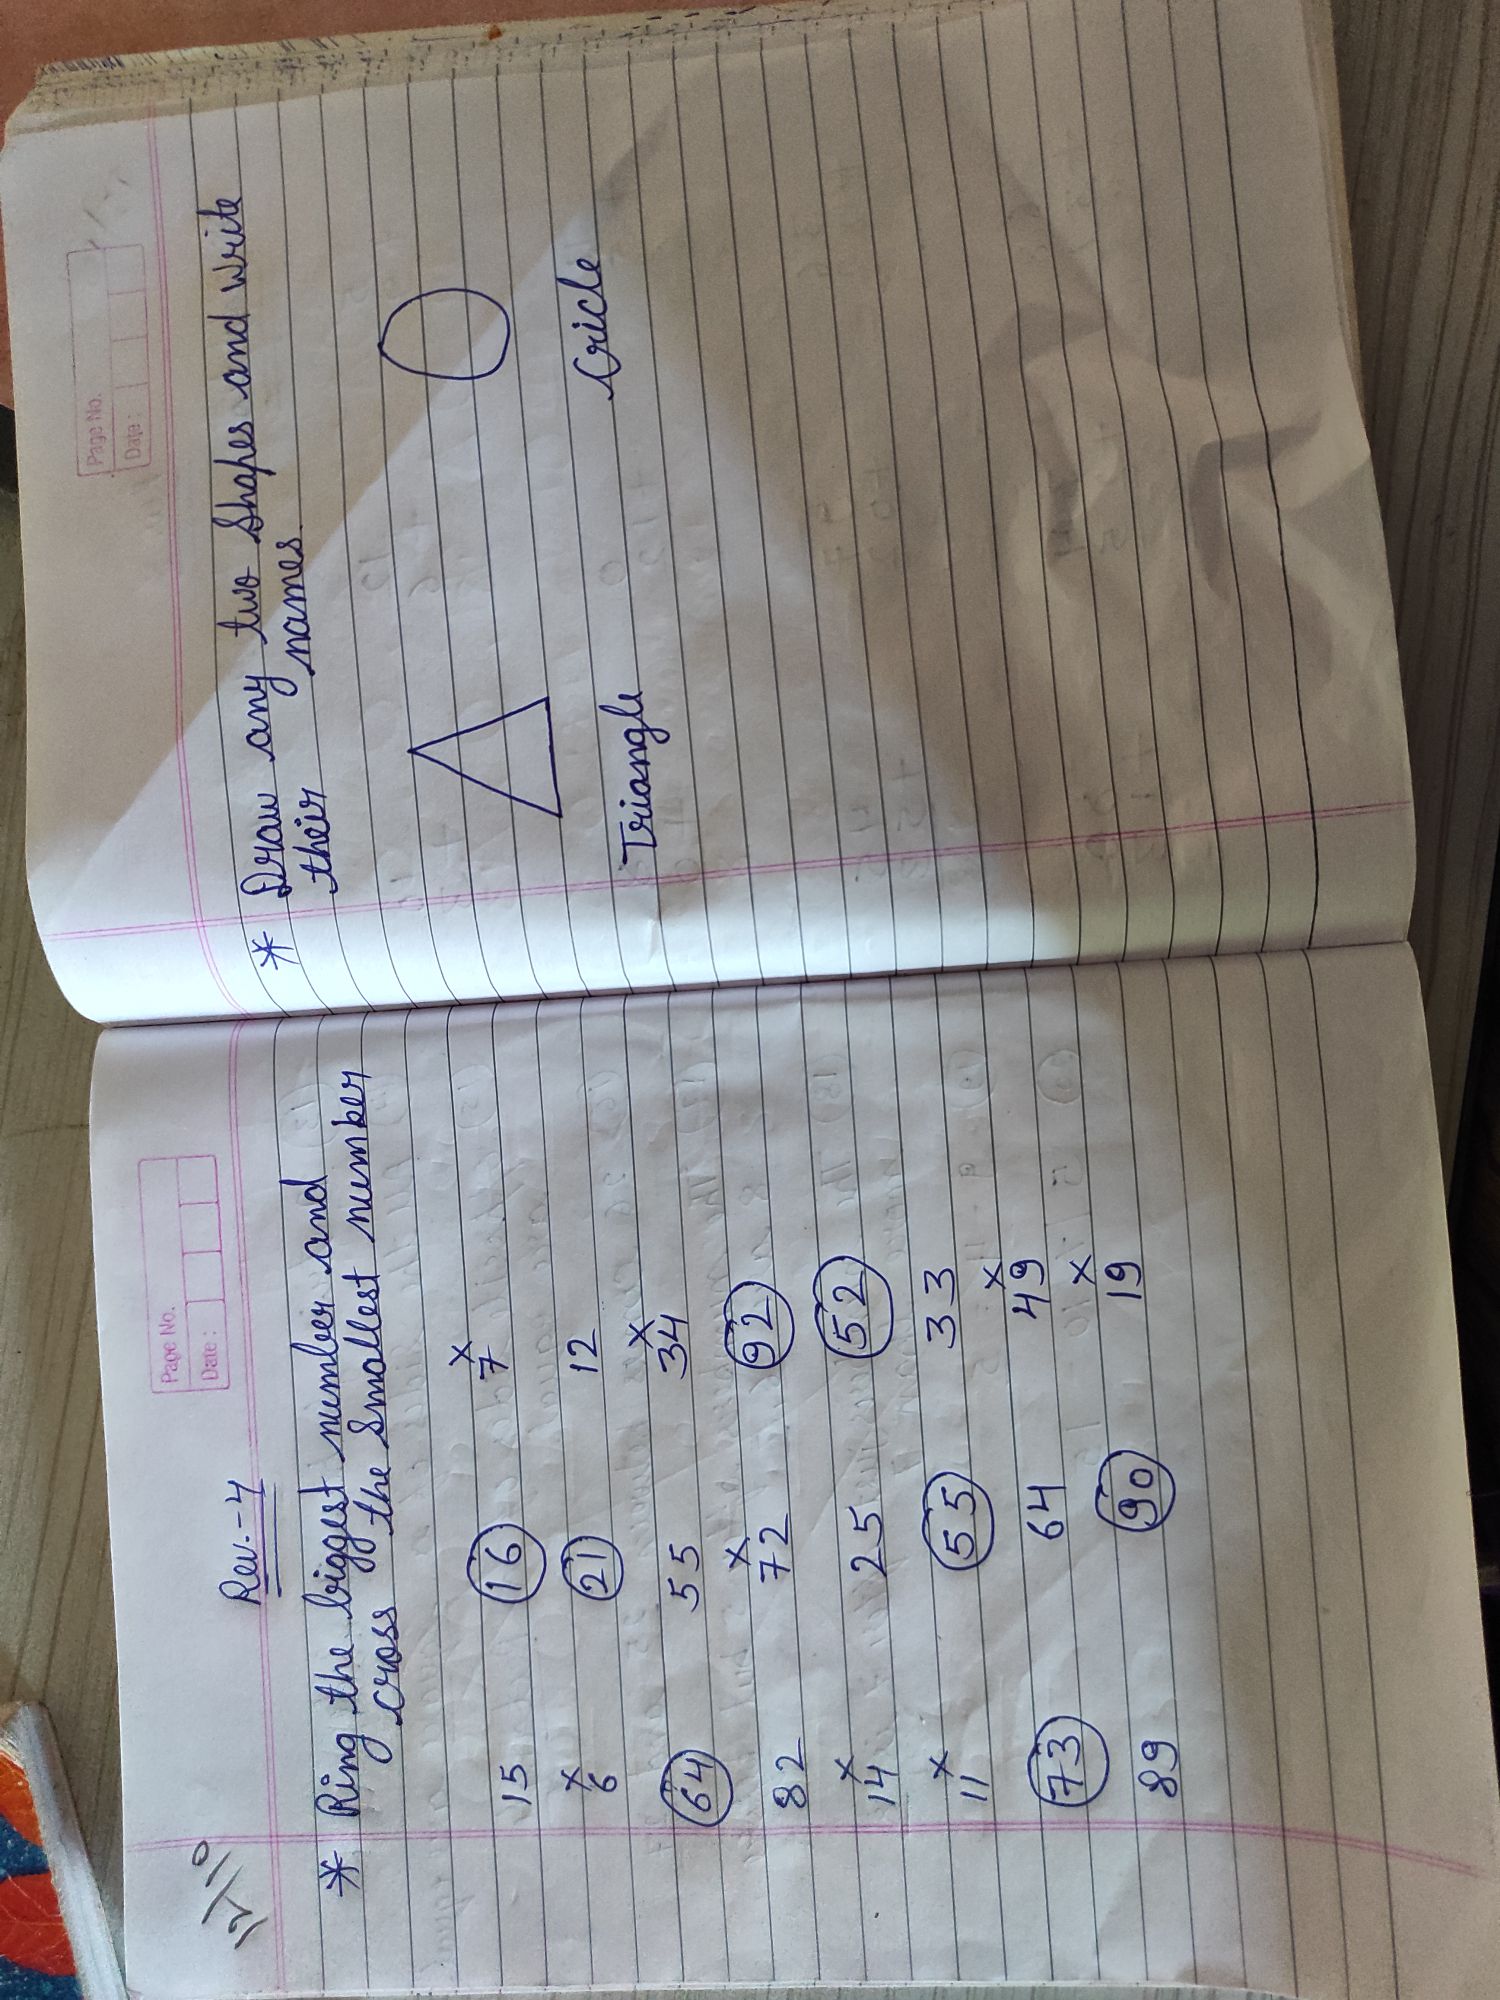 Page No.
Date:
Rev.-4
* Ring the biggest number and
cross the Smallest number
15 16 x 7
x 6 21 12
64 55 x 34
82 x 72 92
x 14 25 52
x 11 55 33
73 64 x 49
89 90 x 19
Page No.
Date:
* Draw any two Shapes and write
their names.
Triangle Cricle